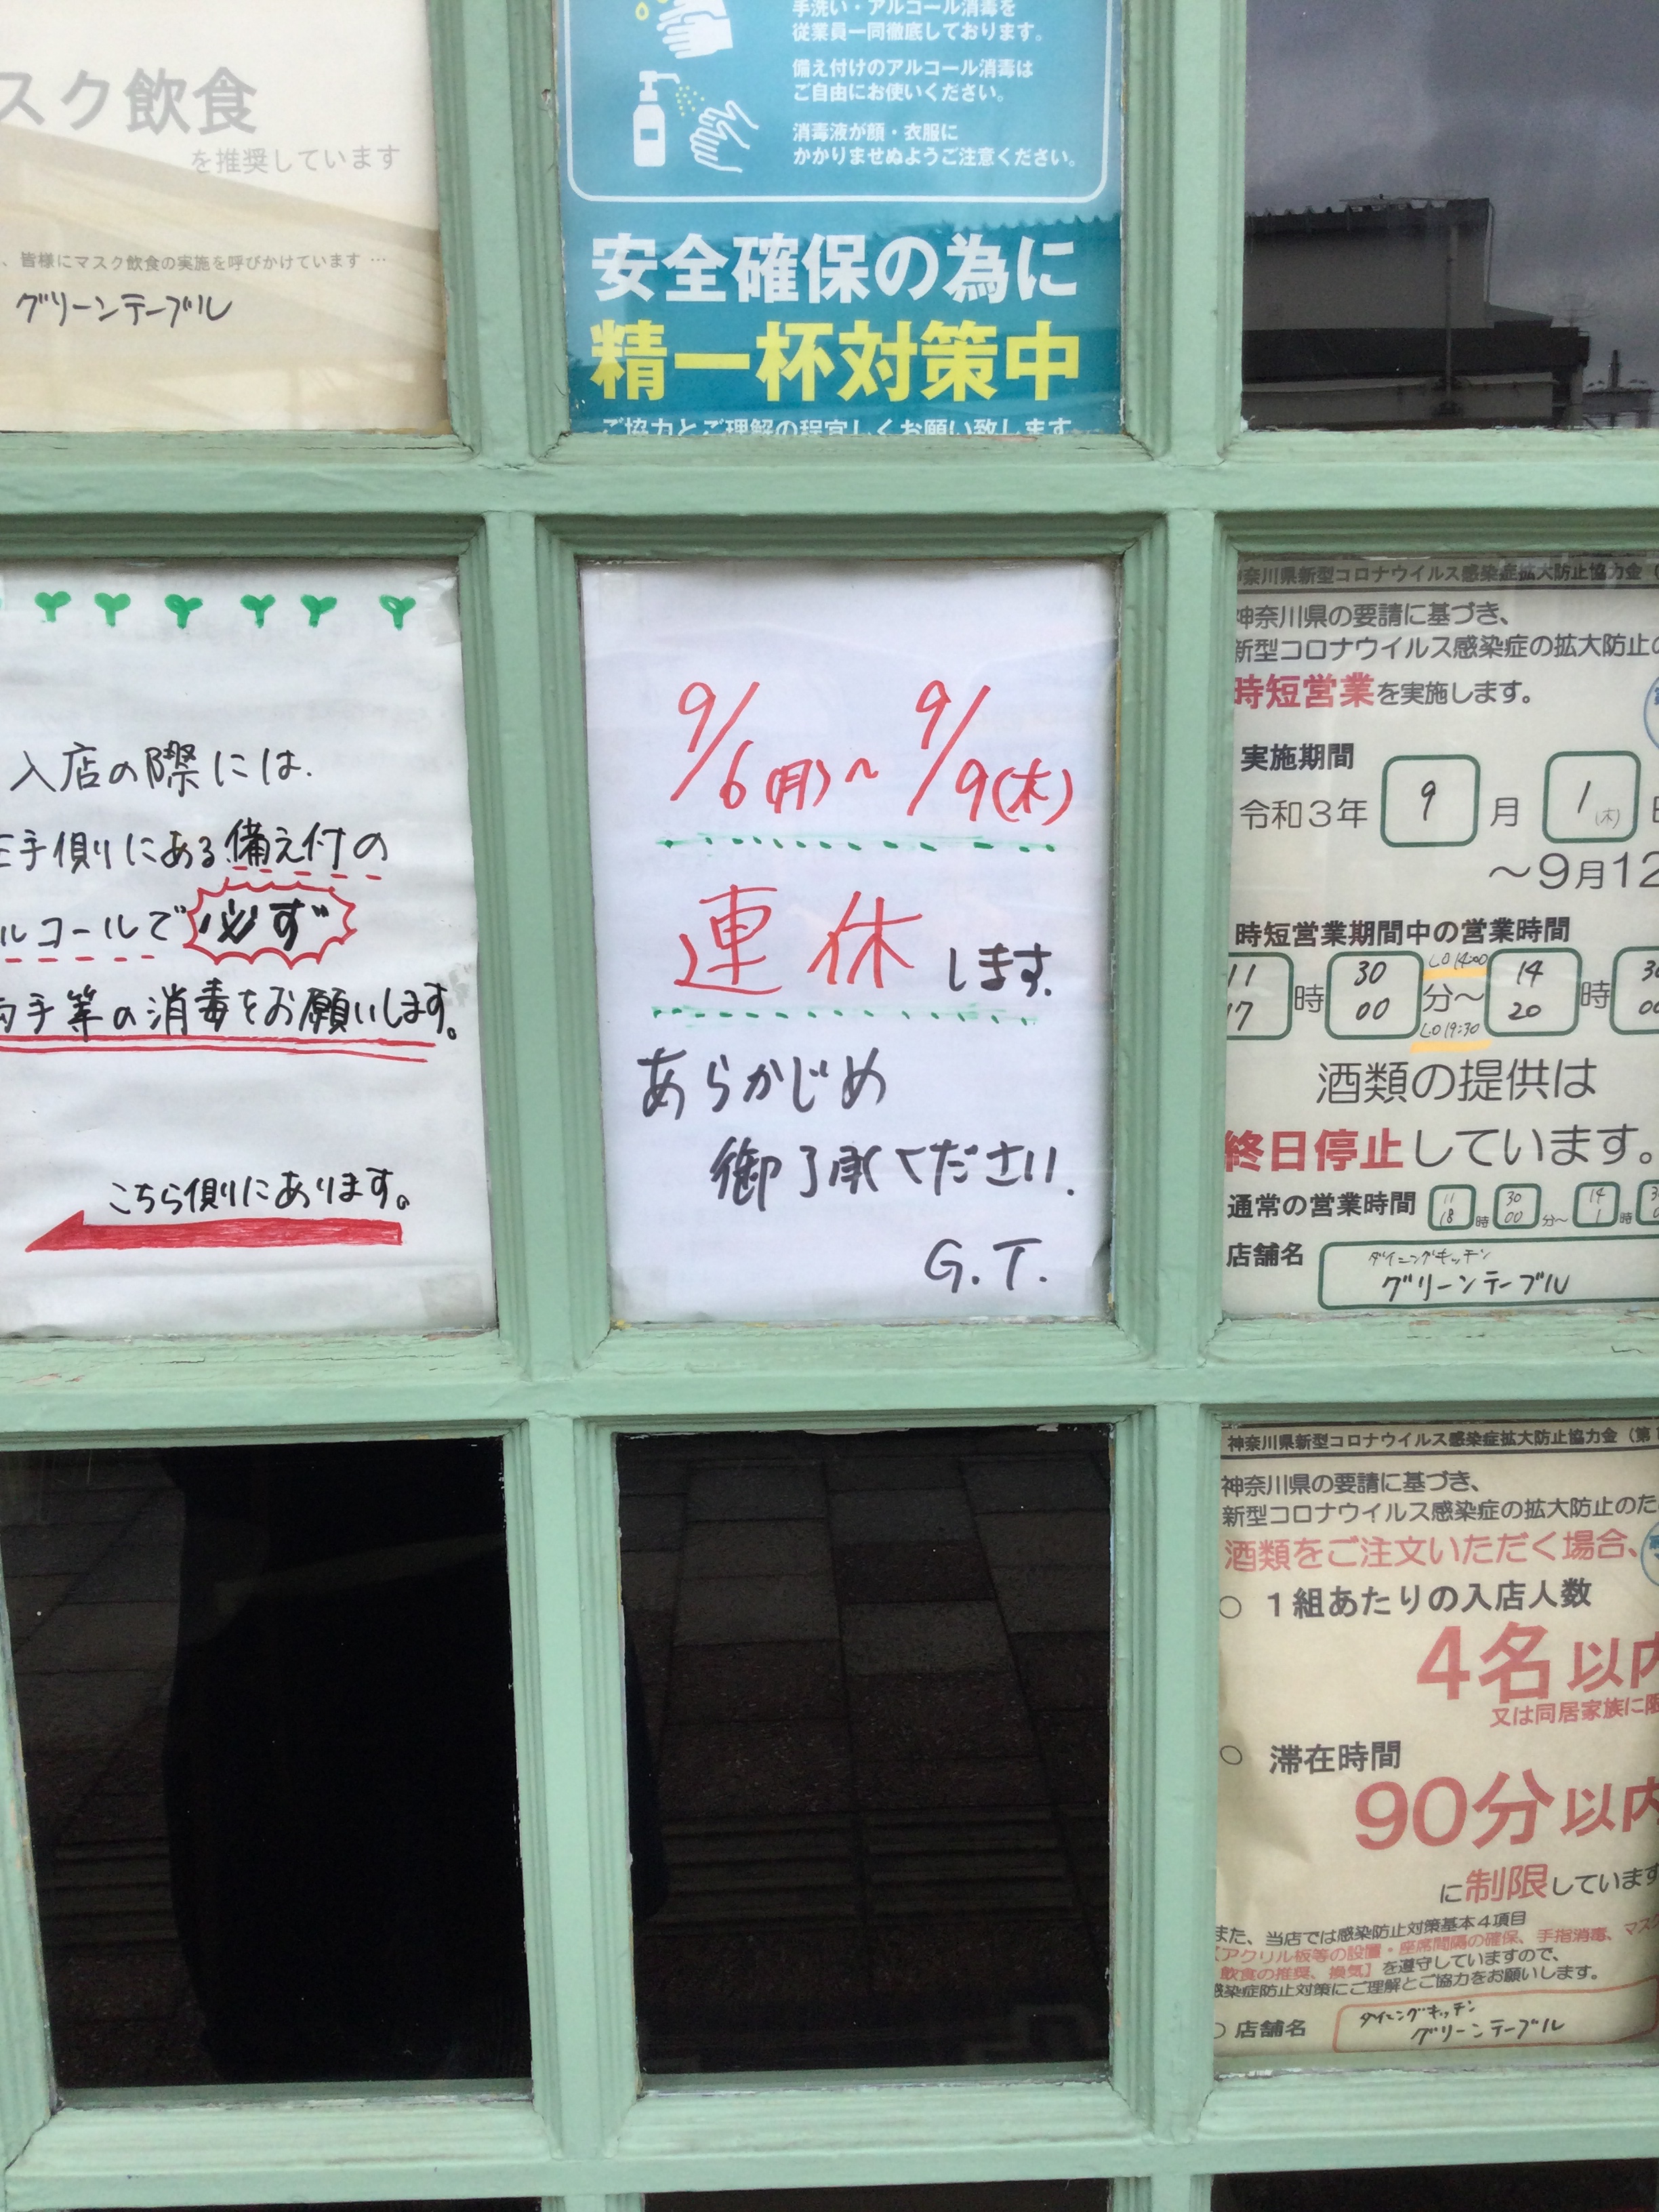 スク飲食
を推奨しています
、皆様にマスク飲食の実施を呼びかけています …
グリーンテーブル
手洗い・アルコール消毒を
従業員一同徹底しております。
備え付けのアルコール消毒は
ご自由にお使いください。
消毒液が顔・衣服に
かかりませぬようご注意ください。
安全確保の為に
精一杯対策中
ご協力とご理解の程宜しくお願い致します
入店の際には.
手側にある備え付の
ルコールで必ず
手等の消毒をお願いします。
こちら側にあります。
9/6(月)~9/9(木)
連休します.
あらかじめ
御了承ください.
G.T.
神奈川県新型コロナウイルス感染症拡大防止協力金(
神奈川県の要請に基づき、
新型コロナウイルス感染症の拡大防止の
時短営業を実施します。
実施期間
令和3年 9 月 1 (木) 日
～9月12
時短営業期間中の営業時間
LO 14:00
11 時 30 分～ 14 時 30
17 00 20 00
LO 19:30
酒類の提供は
終日停止しています。
通常の営業時間 11 18 時 30 00 分～ 14 1 時
店舗名 ダイニングキッチン
グリーンテーブル
神奈川県新型コロナウイルス感染症拡大防止協力金(第
神奈川県の要請に基づき、
新型コロナウイルス感染症の拡大防止のた
酒類をご注文いただく場合、
○ 1組あたりの入店人数
4名以内
又は同居家族に限
○ 滞在時間
90分以内
に制限しています
また、当店では感染防止対策基本4項目
【アクリル板等の設置・座席間隔の確保、手指消毒、マスク
飲食の推奨、換気】を遵守していますので、
感染症防止対策にご理解とご協力をお願いします。
○ 店舗名 ダイニングキッチン
グリーンテーブル